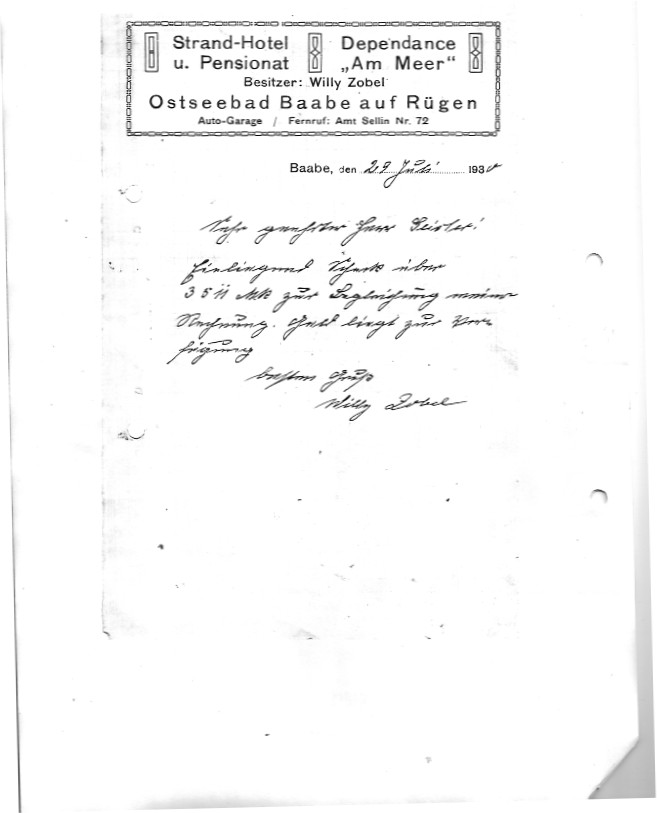 Strand-Hotel Dependance
u. Pensionat „Am Meer“
Besitzer: Willy Zobel
Ostseebad Baabe auf Rügen
Auto-Garage / Fernruf: Amt Sellin Nr. 72
Baabe, den 29 Juli 1930
Sehr geehrter Herr Geister!
Einliegend Scheck über
Mk zur Begleichung meiner
Rechnung. Geld liegt zur Ver-
fügung
besten Gruß
Willy Zobel